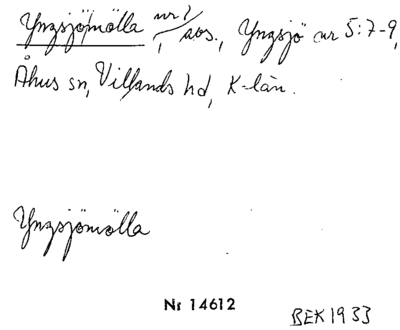 Yngsjömölla nr 1, sos., Yngsjö nr 5:7-9,
Åhus sn, Villands hd, K-län.
Yngsjömölla
Nr 14612
BEK 1933